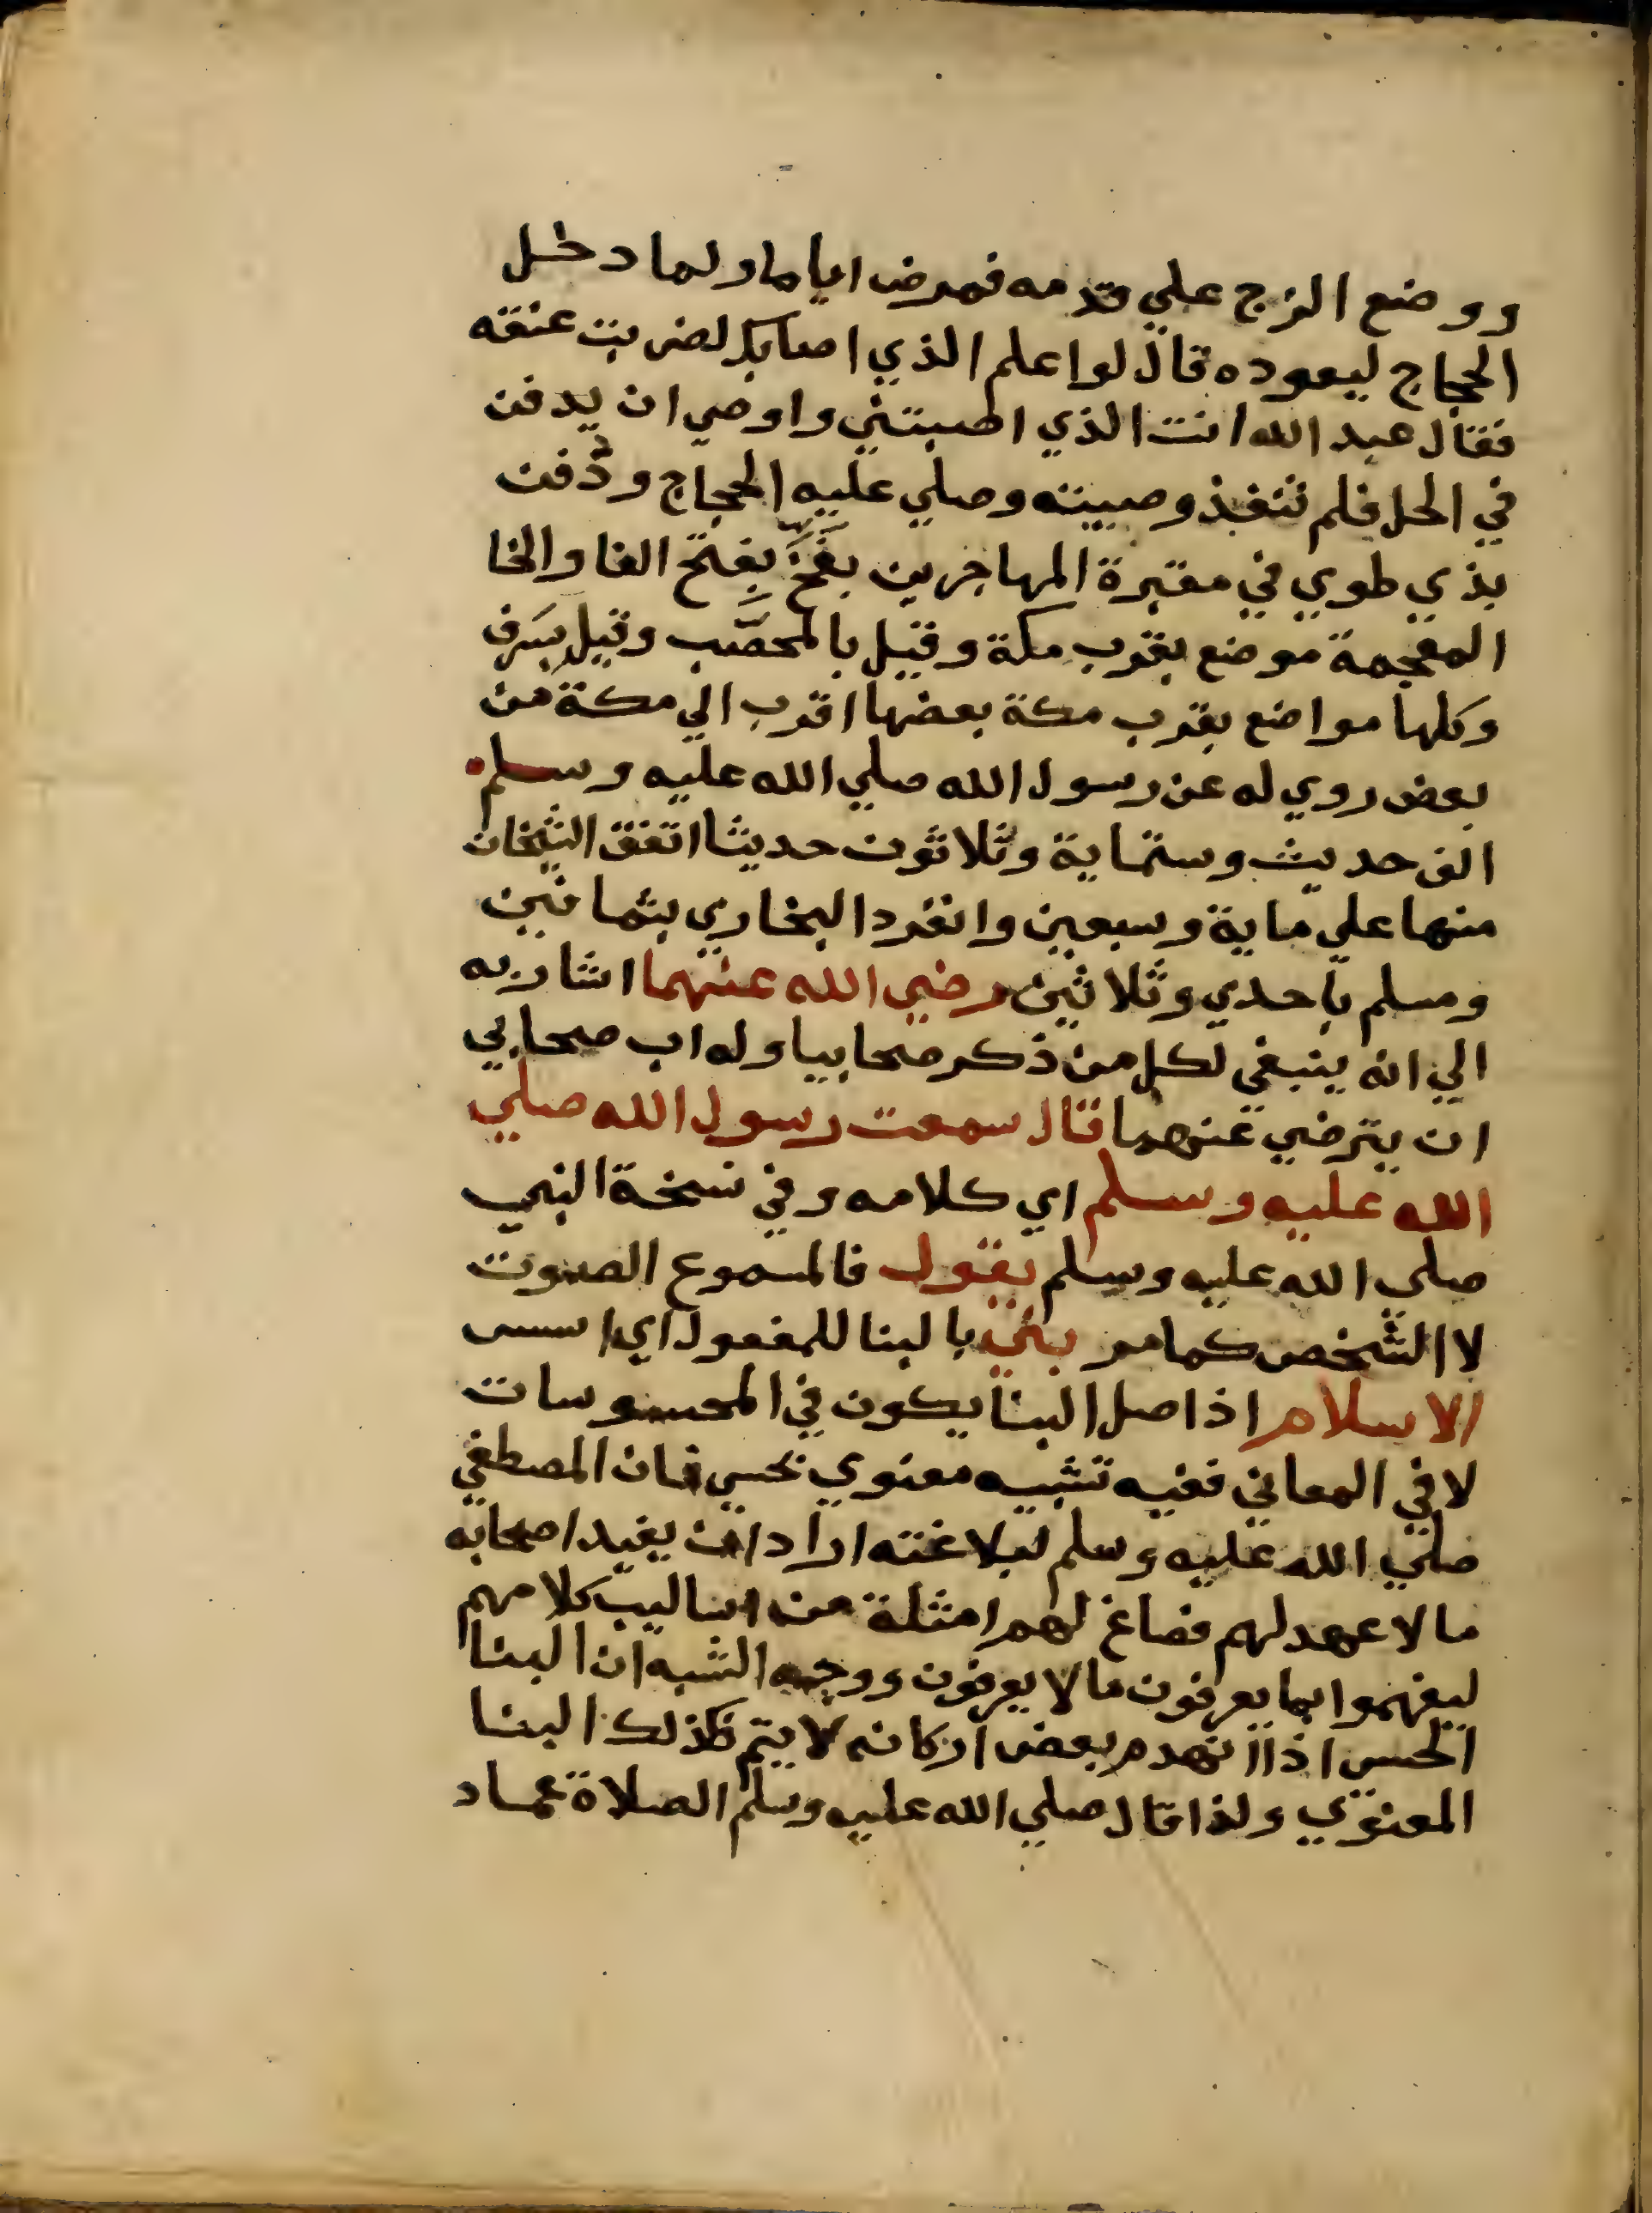 ووضع الزج علي قدمه فمرض اياما ولما دخل
الحجاج ليعوده قال لو اعلم الذي اصابك لضربت عنقه
فقال عبد الله انت الذي اصبتني واوصي ان يدفن
في الحل فلم تنفذ وصيته وصلي عليه الحجاج ودُفن
بذي طوي في مقبرة المهاجرين بفَخّ بفتح الفا والخا
المعجمة موضع بقرب مكة وقيل بالمحصَّب وقيل بسَرِف
وكلها مواضع بقرب مكة بعضها اقرب الي مكة من
بعض روي له عن رسول الله صلي الله عليه وسلم
الف حديث وستماية وثلاثون حديثا اتفق الشيخان
منها علي ماية وسبعين وانفرد البخاري بثمانين
ومسلم باحدي وثلاثين رضي الله عنهما اشار به
الي انه ينبغي لكل من ذكر صحابيا وله اب صحابي
ان يترضي عنهما قال سمعت رسول الله صلي
الله عليه وسلم اي كلامه وفي نسخة النبي
صلي الله عليه وسلم يقول فالمسموع الصوت
لا الشخص كما مر بني بالبنا للمفعول اي اسس
الاسلام اذ اصل البنا يكون في المحسوسات
لا في المعاني ففيه تشبيه معنوي بحسي فان المصطفي
صلي الله عليه وسلم لبلاغته اراد ان يفيد اصحابه
ما لا عهد لهم فصاغ لهم امثلة من اساليب كلامهم
ليفهموا بما يعرفون ما لا يعرفون ووجه الشبه ان البنا
الحسي اذا انهدم بعض اركانه لا يتم فكذلك البنا
المعنوي ولذا قال صلي الله عليه وسلم الصلاة عماد